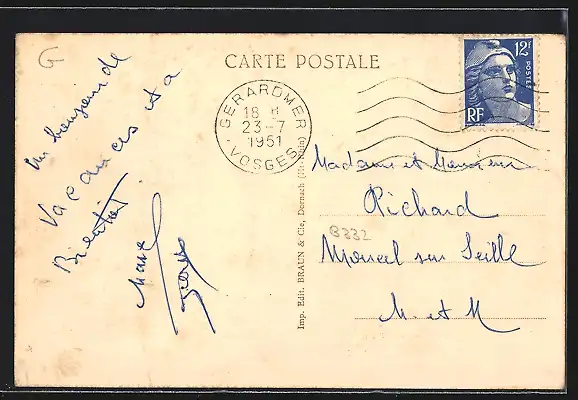 G
CARTE POSTALE
12F
POSTES
RF
GERARDMER
18 H
23-7
1951
VOSGES
Un bonjour de
Vacances et a
Bientôt
Marcel
Imp. Edit. BRAUN & Cie, Dornach (Ht-Rhin)
Madame et Monsieur
Richard
B332
Moncel sur Seille
M. et M